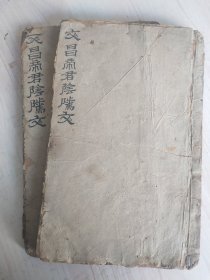 文昌帝君陰騭文
文昌帝君陰騭文